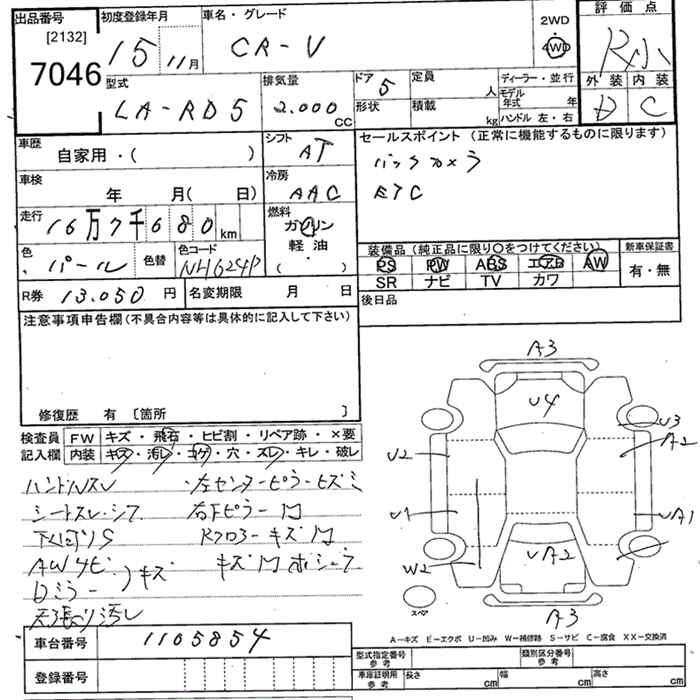 出品番号
[2132]
7046
初度登録年月
15 11月
車名・グレード
CR-V
2WD
4WD
評価点
R小
外装 内装
D C
型式
LA-RD5
排気量
2.000 CC
ドア
5
形状
定員
人
積載
kg
ディーラー・並行
モデル年式 年
ハンドル 左・右
車歴
自家用・( )
シフト
AT
セールスポイント (正常に機能するものに限ります)
バックカメラ
ETC
車検
年 月( 日)
冷房
AAC
走行
16万7千680km
燃料
ガソリン
軽油
・
( )
色
パール
色替
色コード
NH624P
装備品(純正品に限り○をつけてください)
PS PW ABS エアB AW
SR ナビ TV カワ
新車保証書
有・無
R券 13.050 円
名変期限 月 日
後日品
注意事項申告欄(不具合内容等は具体的に記入して下さい)
修復歴 有 〔箇所 〕
検査員記入欄
FW キズ・飛石・ヒビ割・リペア跡・×要
内装 キズ・汚レ・コゲ・穴・スレ・キレ・破レ
ハンドルスレ ・左センターピラーヒズミ
シートスレ・シワ
下回りS
AWサビ
Dミラーキズ
天張り汚レ
A3
U4
U3
A2
U2
U1
UA1
W2
UA2
A3
スペア
A-キズ E-エクボ U-凹み W-補修跡 S-サビ C-腐食 XX-交換済
車台番号 1105854
登録番号
型式指定番号 参考
類別区分番号 参考
車庫証明用 参考
長さ cm
幅 cm
高さ cm